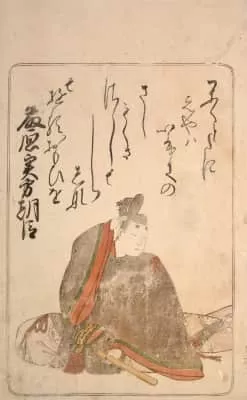 かくとたに
えやは
いふきの
さし
もくさ
さしも
しらし
な
もゆるおもひを
藤原実方朝臣